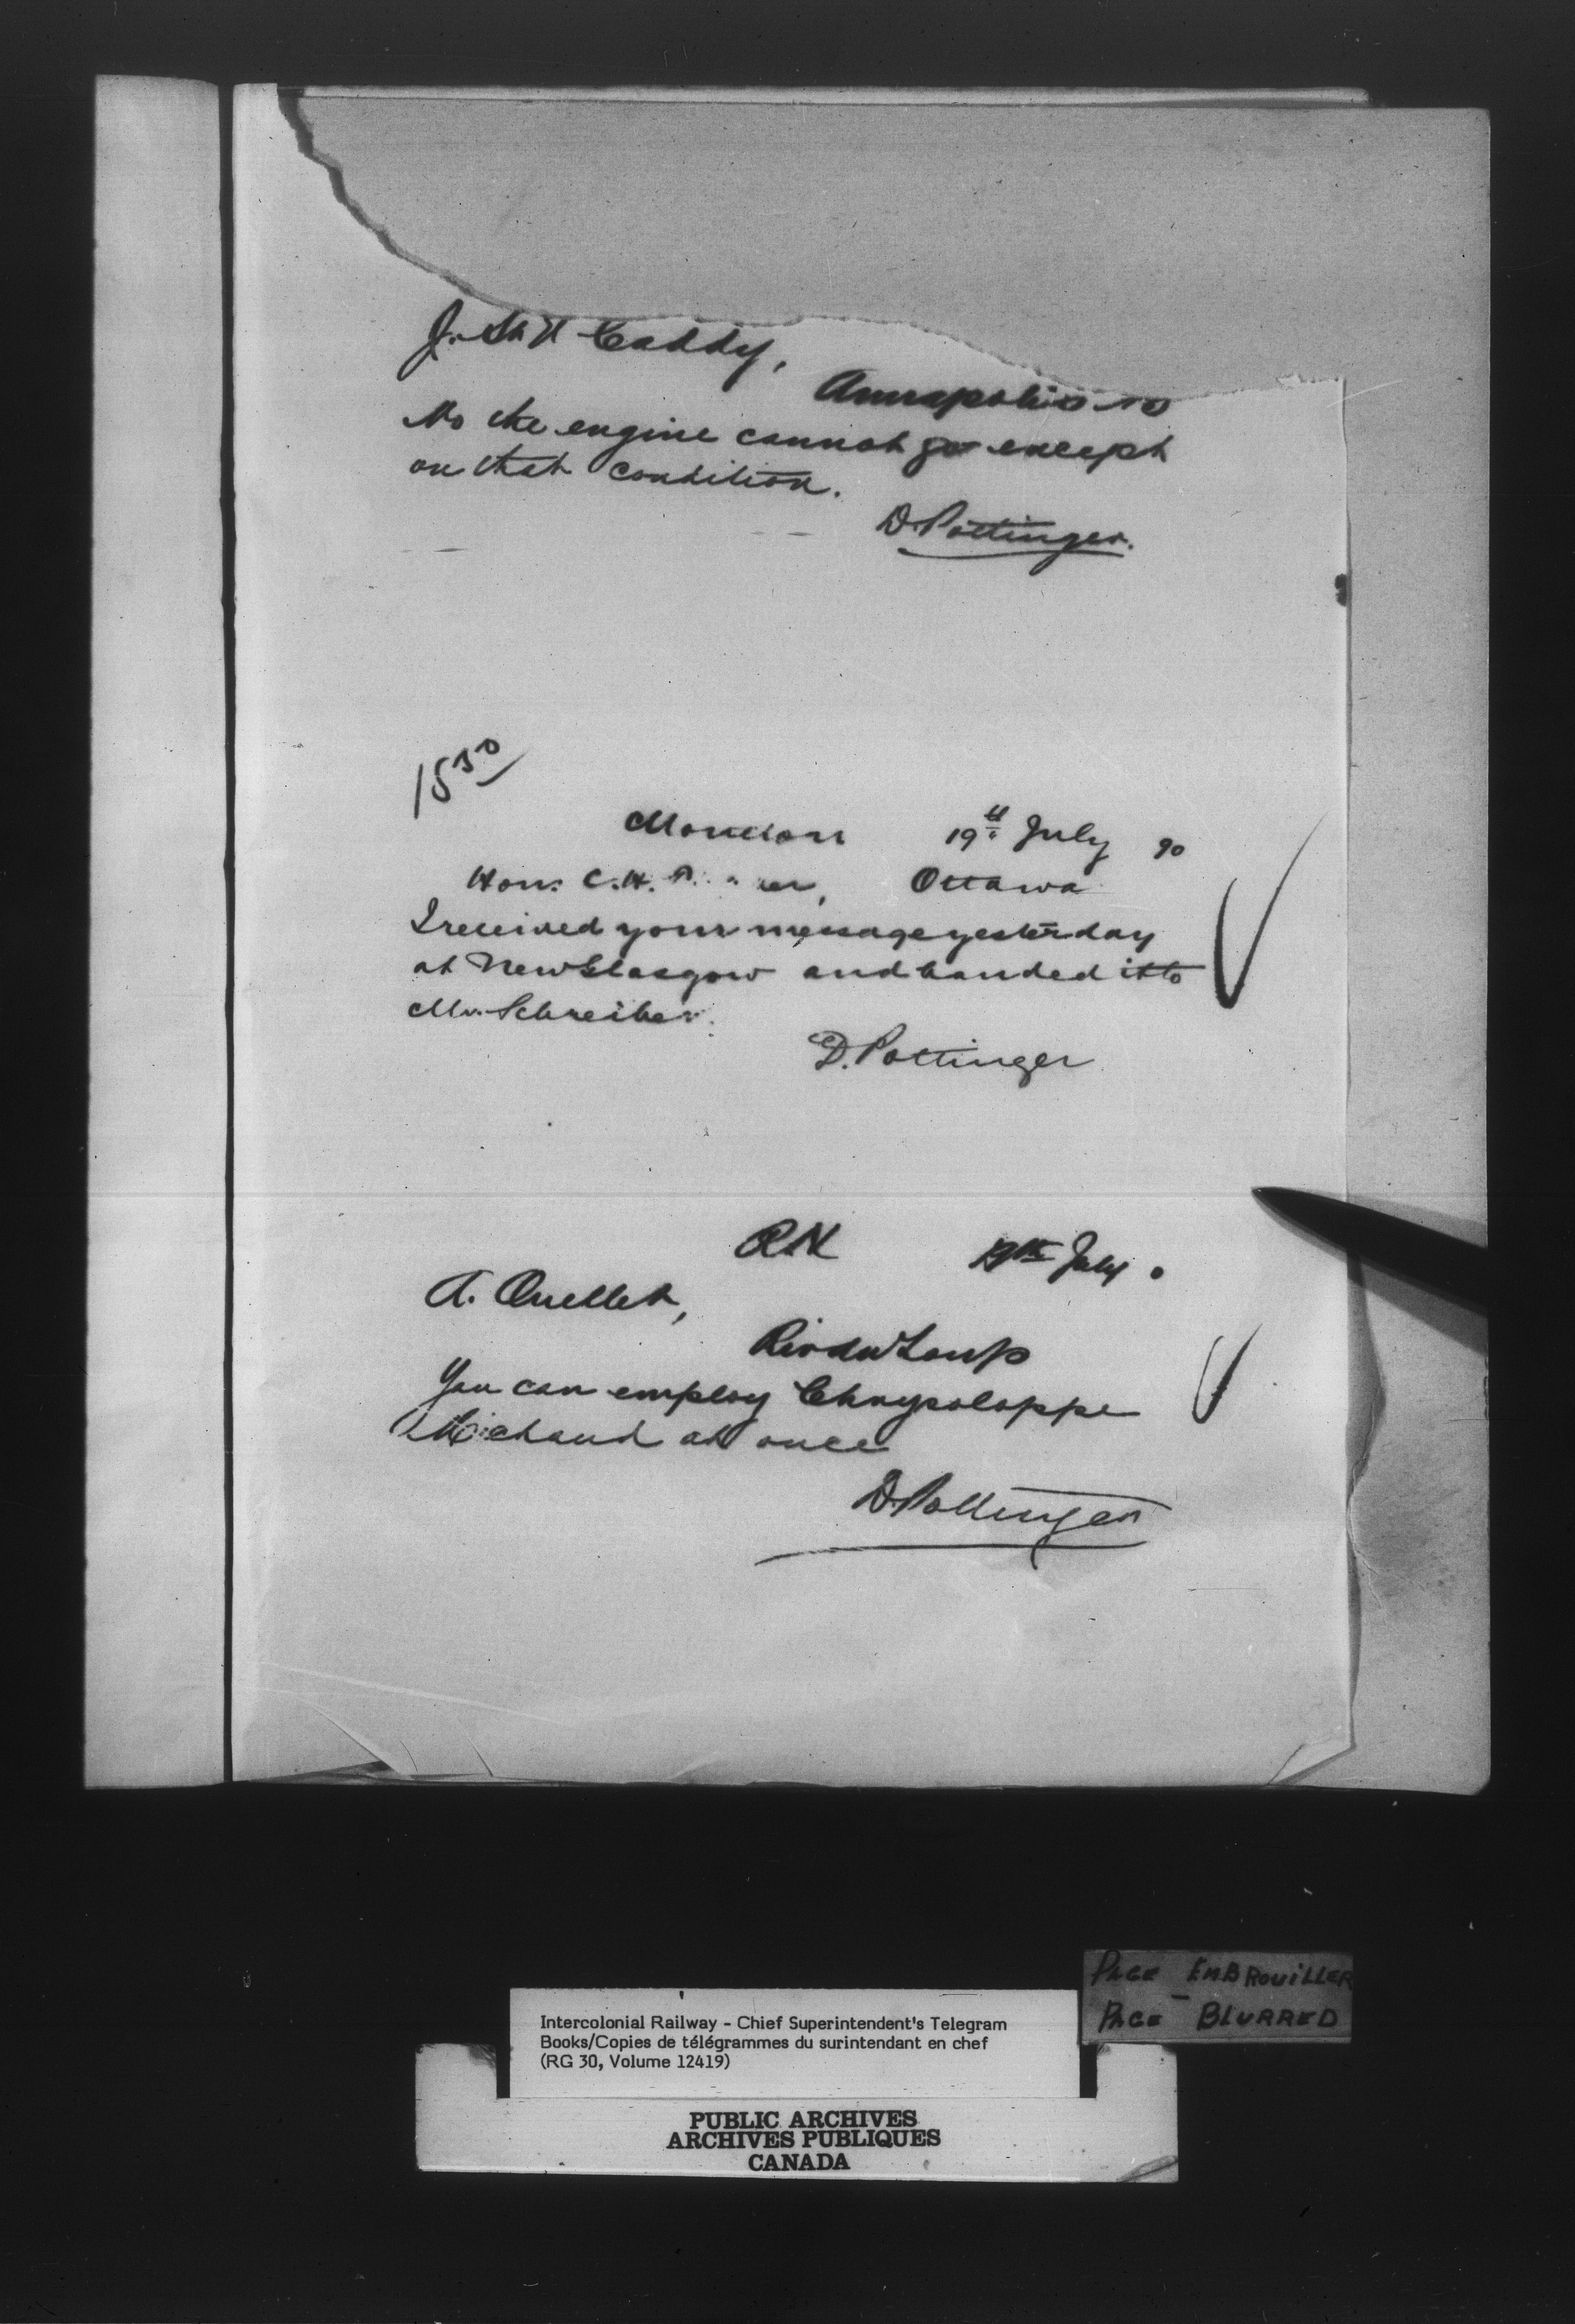 J. St V Caddy,
Annapolis NS
No the engine cannot go except
on that condition.
D. Pottinger.
15 30
Moncton 19th July 90
Hon. C. H. Ottawa
I received your message yesterday
at New Glasgow and handed it to
Mr. Schreiber.
D. Pottinger
RN 19th July 0
A. Ouellet,
Riv du Loup
You can employ Chrysoloppe
Michaud at once
D. Pottinger
PAGE EMBROUILLER
PAGE BLURRED
Intercolonial Railway - Chief Superintendent's Telegram
Books/Copies de télégrammes du surintendant en chef
(RG 30, Volume 12419)
PUBLIC ARCHIVES
ARCHIVES PUBLIQUES
CANADA